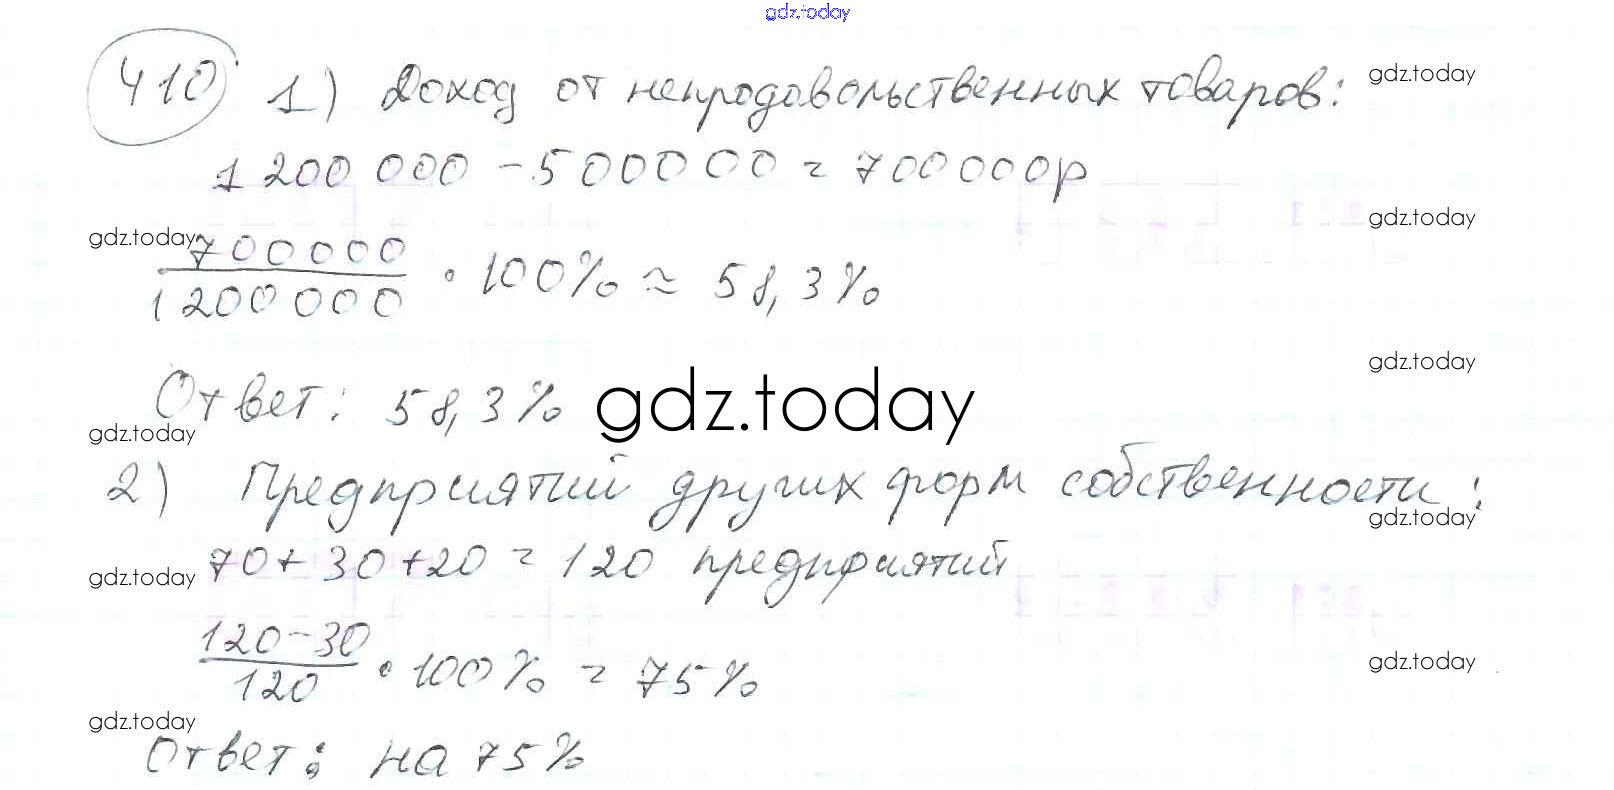 gdz.today
410 1) Доход от непродовольственных товаров: gdz.today
1 200 000 - 500000 = 700000р
gdz.today
gdz.today 700000
1200000 · 100% ≈ 58,3%
gdz.today
Ответ: 58,3% gdz.today
gdz.today
2) Предприятий других форм собственности:
gdz.today
gdz.today 70+30+20 = 120 предприятий
120-30
120 · 100% = 75%
gdz.today
gdz.today
Ответ: на 75%